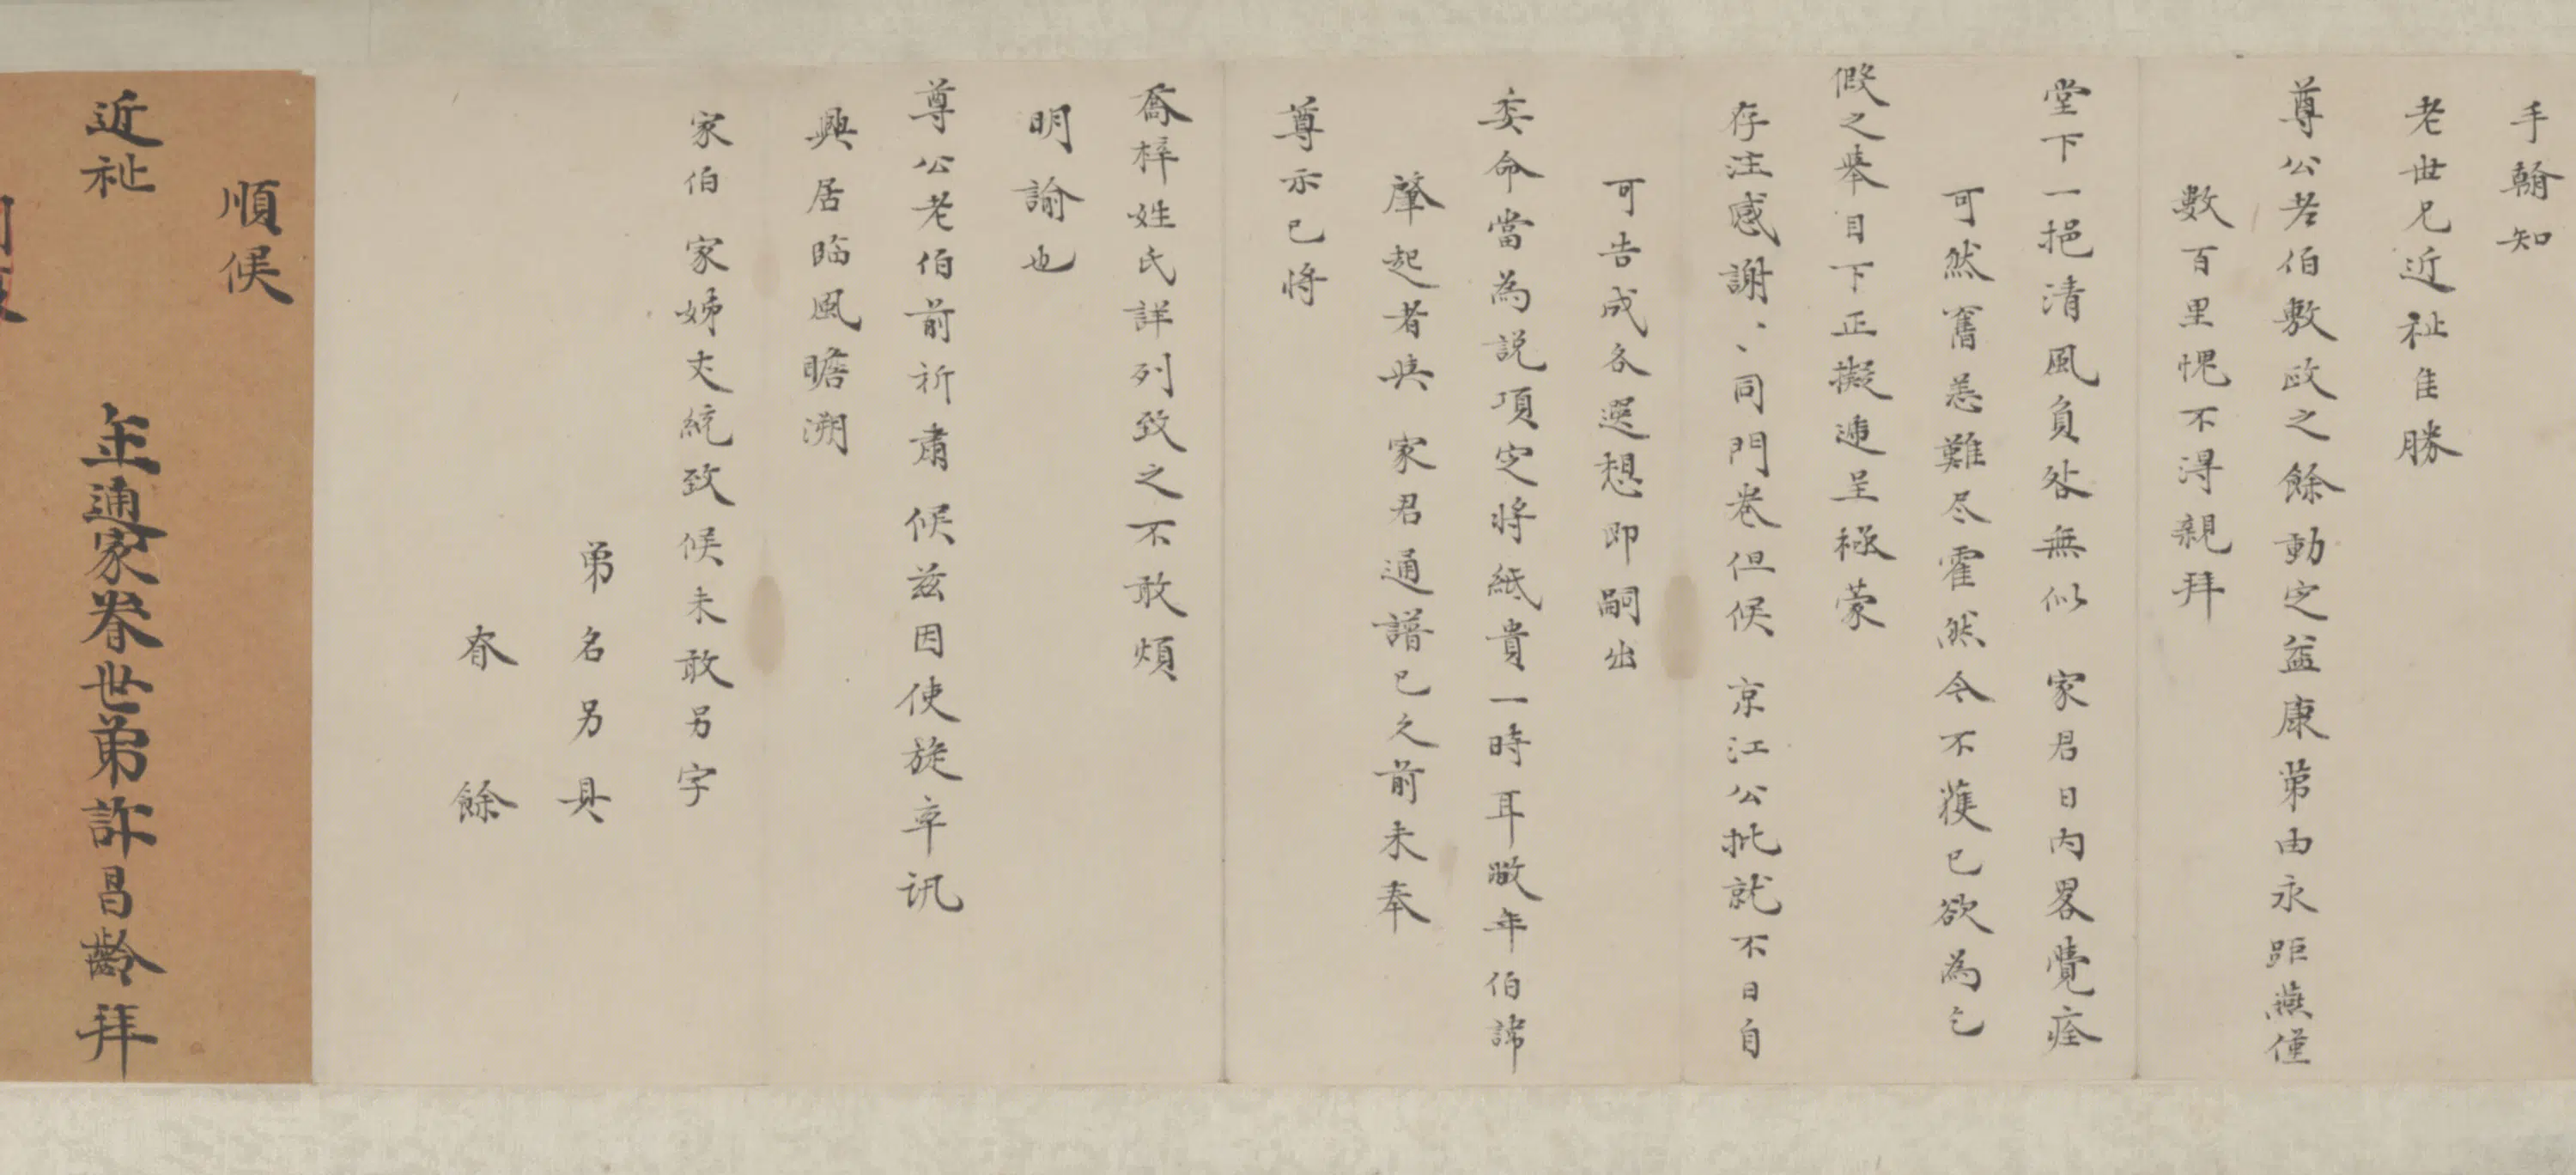 手翰知
老世兄近祉隹勝
尊公老伯敷政之餘動定益康苐由永距燕僅
數百里愧不得親拜
堂下一挹清風負咎無似 家君日內畧覺痊
可然舊恙難尽霍然今不獲已欲為乞
假之舉目下正擬速呈極蒙
存注感謝〻同門卷但候 京江公批就不日自
可告成各選想即嗣出
委命當為説項定將紙貴一時耳敝年伯諱
肇起者與 家君通譜已久前未奉
尊示已將
喬梓姓氏詳列致之不敢煩
明諭也
尊公老伯前祈肅候茲因使旋草訊
興居臨風瞻溯
家伯家姊丈統致候未敢另字
弟名另具
春餘
順候
近祉 年通家眷世弟許昌齡拜